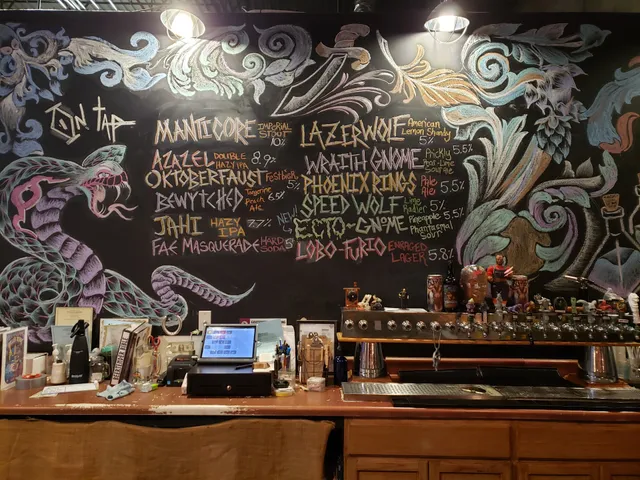 On TAP
MANTICORE IMPERIAL STOUT 10%
AZAZEL DOUBLE HAZY IPA 8.9%
OKTOBERFAUST Festbier 5%
BEWYTCHED Tangerine Peach Ale 6.5%
JAHI HAZY IPA 7.7%
FAE MASQUERADE HARD SODA 5%
LAZERWOLF American Lemon Shandy 5%
WRAITH GNOME Prickly Pear-Lime Gourd Ale 5.5%
PHOENIX RINGS Pale Ale 5.5%
SPEED WOLF Lime Pilsner 5%
NEW! ECTO-GNOME Pineapple Phantasmal SOUR 5.5%
LOBO FURIO ENRAGED LAGER 5.8%